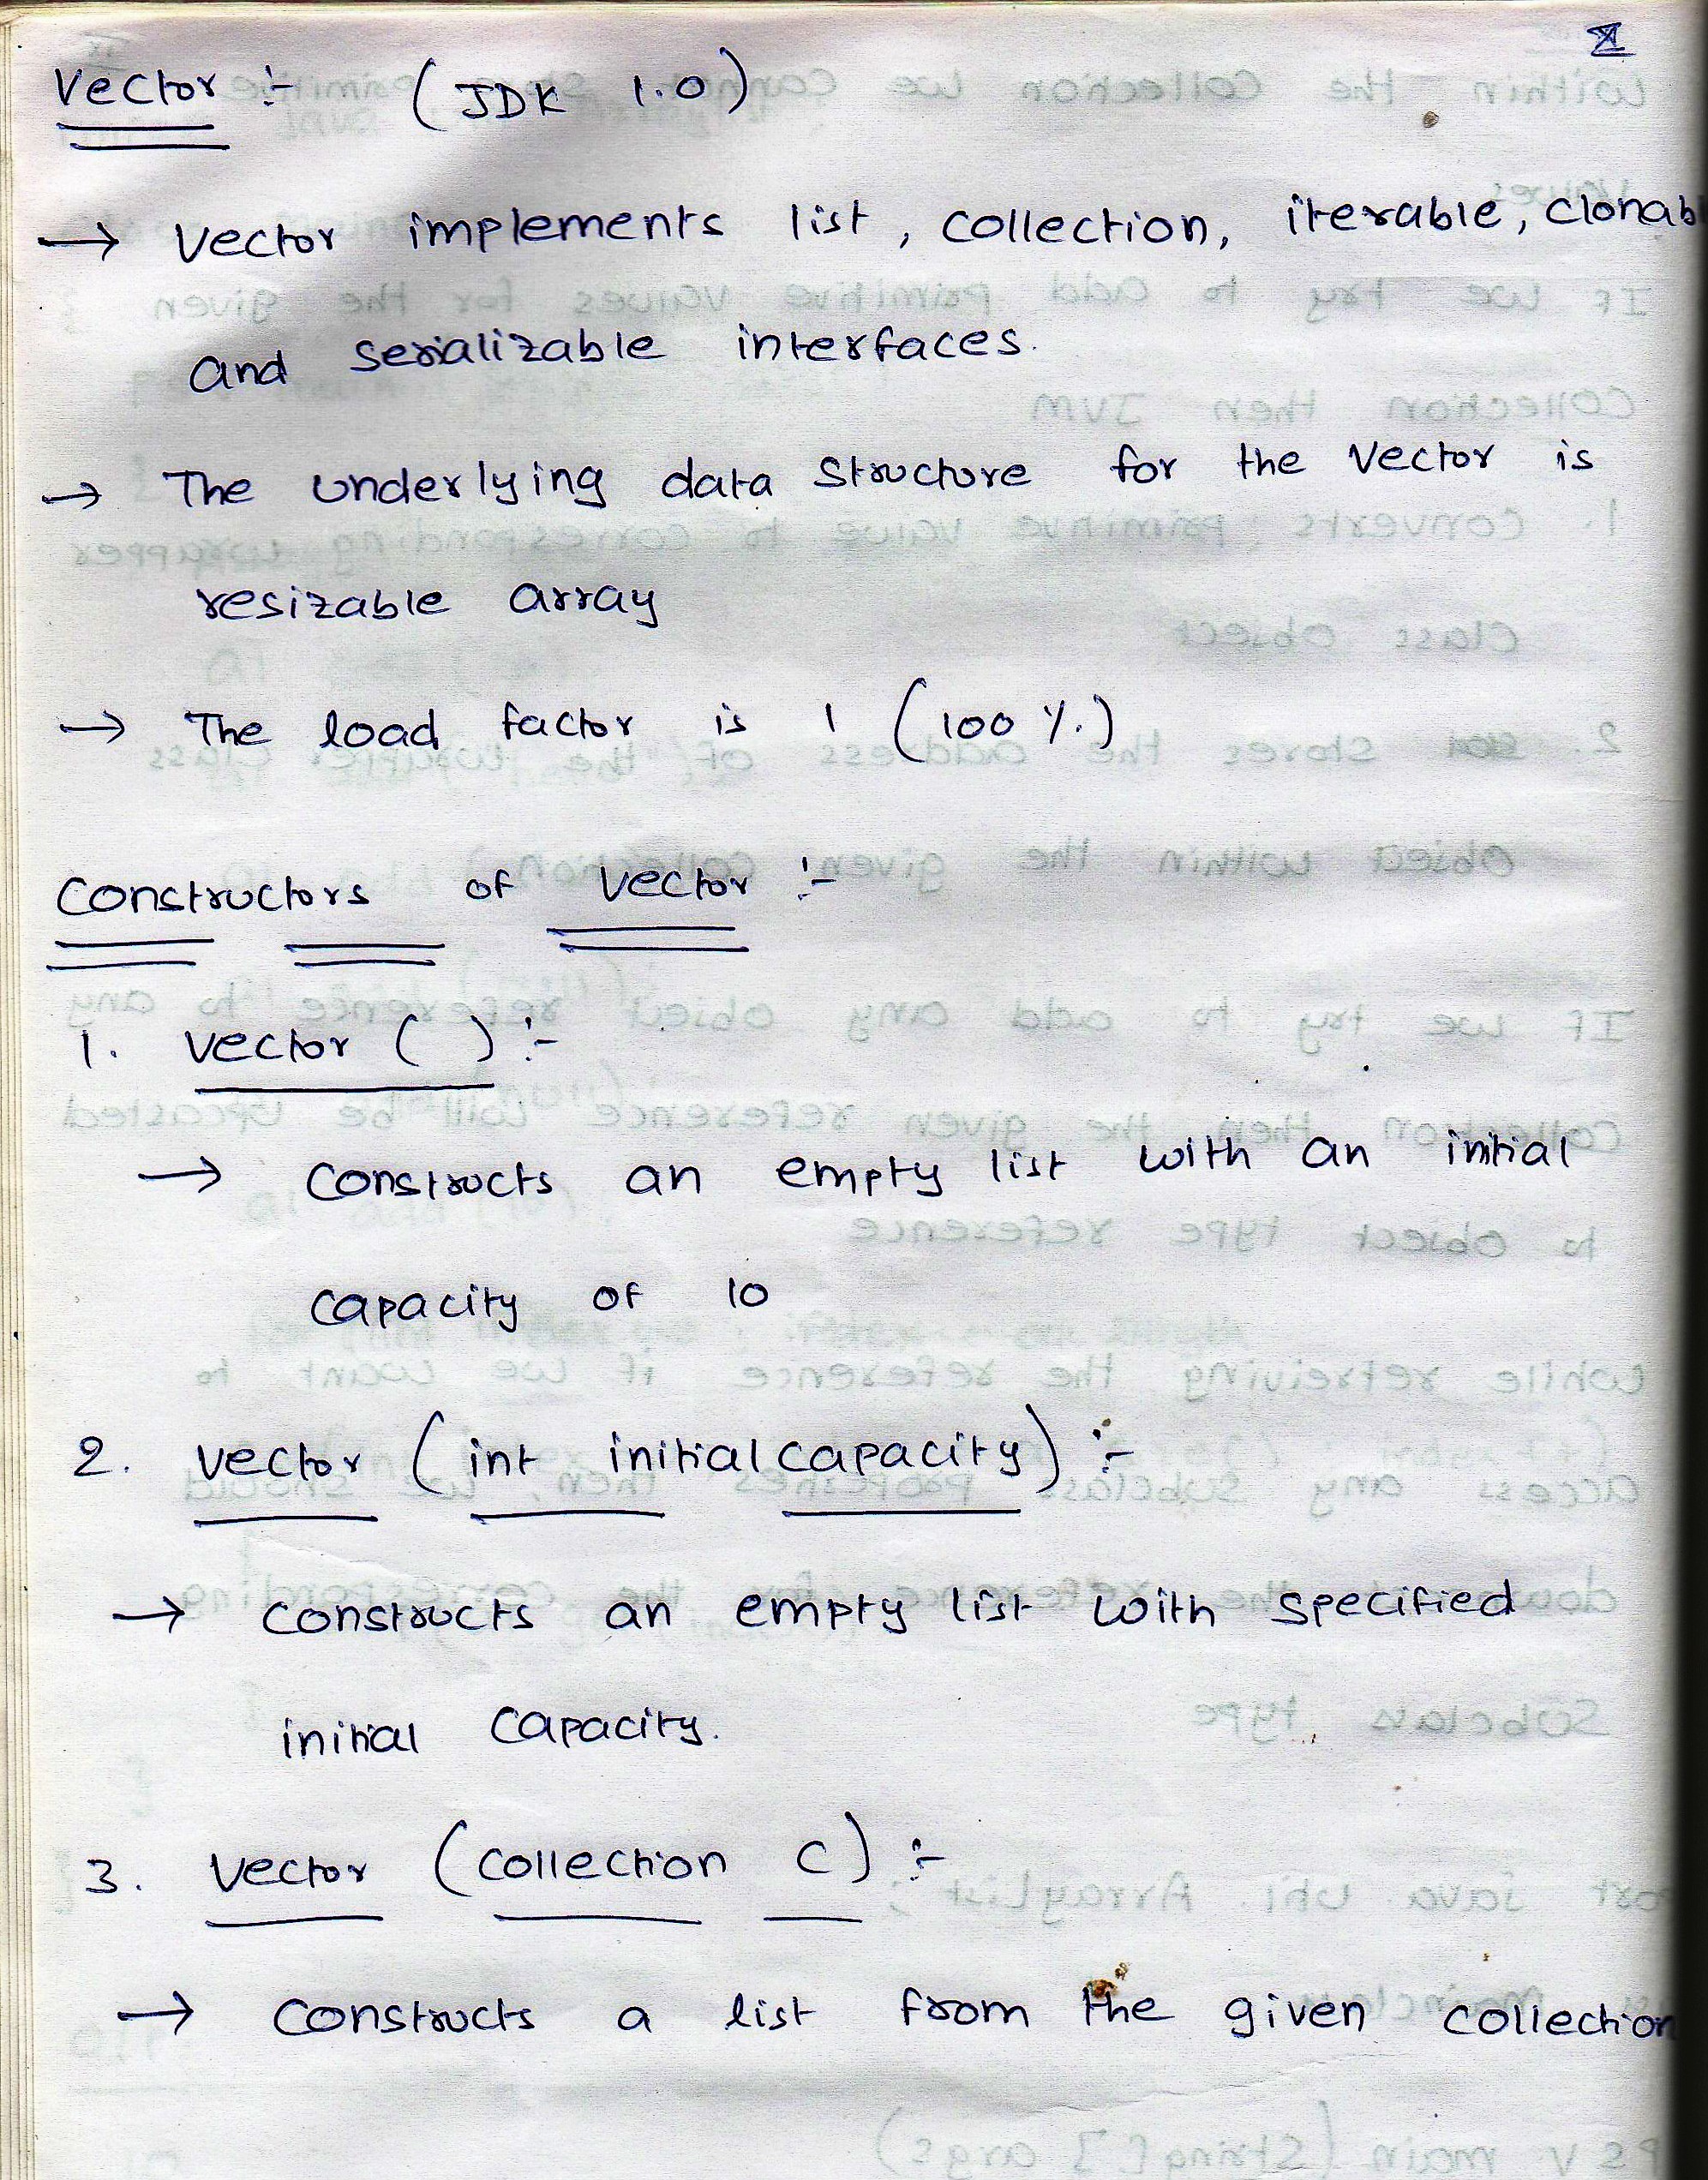 Vector :- (JDK 1.0)
→ Vector implements list, collection, iterable, clonab
and serializable interfaces.
→ The underlying data structure for the vector is
resizable array
→ The load factor is 1 (100 %.)
Constructors of Vector :-
1. Vector ( ) :-
→ constructs an empty list with an initial
capacity of 10
2. Vector (int initialcapacity) :-
→ constructs an empty list with specified
initial capacity.
3. Vector (collection c) :-
→ constructs a list from the given collection